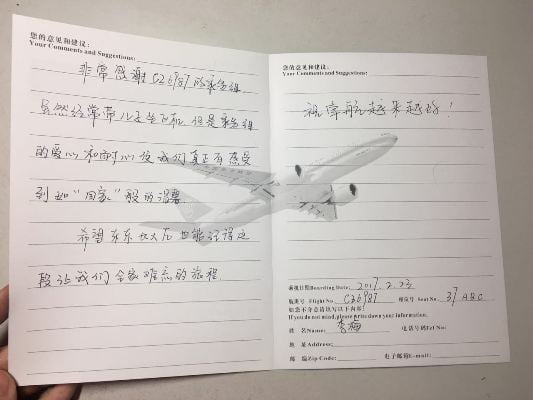 您的意见和建议:
Your Comments and Suggestions:
非常感谢CZ6987的乘务组
虽然经常带儿子坐飞机,但是乘务组
的爱心和耐心使我们真正有感受
到如“回家”般的温馨.
希望东东长大后也能记得这
段让我们全家难忘的旅程.
您的意见和建议:
Your Comments and Suggestions:
祝南航越来越好!
乘机日期Boarding Date: 2017.2.23
航班号 Flight No. CZ6987 座位号 Seat No. 37 ABC
如您不介意请填写以下内容:
If you do not mind,please write down your information.
姓 名Name: 李梅 电话号码Tel No:
地 址Address:
邮 编Zip Code: 电子邮箱E-mail: